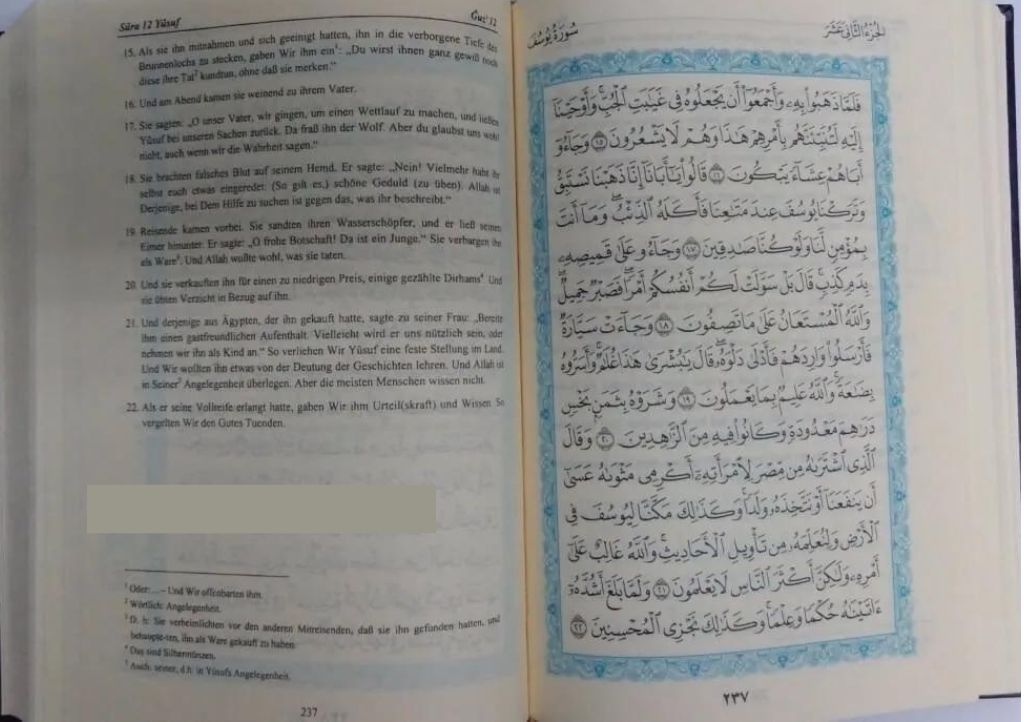 Sūra 12 Yūsuf
Ǧuz' 12
15. Als sie ihn mitnahmen und sich geeinigt hatten, ihn in die verborgene Tiefe des
Brunnenlochs zu stecken, gaben Wir ihm ein¹: „Du wirst ihnen ganz gewiß noch
diese ihre Tat² kundtun, ohne daß sie merken.“
16. Und am Abend kamen sie weinend zu ihrem Vater.
17. Sie sagten: „O unser Vater, wir gingen, um einen Wettlauf zu machen, und ließen
Yūsuf bei unseren Sachen zurück. Da fraß ihn der Wolf. Aber du glaubst uns wohl
nicht, auch wenn wir die Wahrheit sagen.“
18. Sie brachten falsches Blut auf seinem Hemd. Er sagte: „Nein! Vielmehr habt ihr
selbst euch etwas eingeredet. (So gilt es,) schöne Geduld (zu üben). Allah ist
Derjenige, bei Dem Hilfe zu suchen ist gegen das, was ihr beschreibt.“
19. Reisende kamen vorbei. Sie sandten ihren Wasserschöpfer, und er ließ seinen
Eimer hinunter. Er sagte: „O frohe Botschaft! Da ist ein Junge.“ Sie verbargen ihn
als Ware³. Und Allah wußte wohl, was sie taten.
20. Und sie verkauften ihn für einen zu niedrigen Preis, einige gezählte Dirhams⁴ Und
sie übten Verzicht in Bezug auf ihn.
21. Und derjenige aus Ägypten, der ihn gekauft hatte, sagte zu seiner Frau: „Bereite
ihm einen gastfreundlichen Aufenthalt. Vielleicht wird er uns nützlich sein, oder
nehmen wir ihn als Kind an.“ So verliehen Wir Yūsuf eine feste Stellung im Land.
Und Wir wollten ihn etwas von der Deutung der Geschichten lehren. Und Allah ist
in Seiner⁵ Angelegenheit überlegen. Aber die meisten Menschen wissen nicht.
22. Als er seine Vollreife erlangt hatte, gaben Wir ihm Urteil(skraft) und Wissen So
vergelten Wir den Gutes Tuenden.
¹ Oder:....- Und Wir offenbarten ihm.
² Wörtlich: Angelegenheit.
³ D. h: Sie verheimlichten vor den anderen Mitreisenden, daß sie ihn gefunden hatten, und
behaupte-ten, ihn als Ware gekauft zu haben.
⁴ Das sind Silbermünzen.
⁵ Auch: seiner, d.h: in Yūsufs Angelegenheit.
237
سُورَةُ يُوسُفَ
الجُزْءُ الثَّانِي عَشَرَ
فَلَمَّا ذَهَبُوا۟ بِهِۦ وَأَجْمَعُوٓا۟ أَن يَجْعَلُوهُ فِى غَيَـٰبَتِ ٱلْجُبِّ ۚ وَأَوْحَيْنَآ
إِلَيْهِ لَتُنَبِّئَنَّهُم بِأَمْرِهِمْ هَـٰذَا وَهُمْ لَا يَشْعُرُونَ ١٥ وَجَآءُوٓ
أَبَاهُمْ عِشَآءً يَبْكُونَ ١٦ قَالُوا۟ يَـٰٓأَبَانَآ إِنَّا ذَهَبْنَا نَسْتَبِقُ
وَتَرَكْنَا يُوسُفَ عِندَ مَتَـٰعِنَا فَأَكَلَهُ ٱلذِّئْبُ ۖ وَمَآ أَنتَ
بِمُؤْمِنٍ لَّنَا وَلَوْ كُنَّا صَـٰدِقِينَ ١٧ وَجَآءُو عَلَىٰ قَمِيصِهِۦ
بِدَمٍ كَذِبٍ ۚ قَالَ بَلْ سَوَّلَتْ لَكُمْ أَنفُسُكُمْ أَمْرًا ۖ فَصَبْرٌ جَمِيلٌ ۖ
وَٱللَّهُ ٱلْمُسْتَعَانُ عَلَىٰ مَا تَصِفُونَ ١٨ وَجَآءَتْ سَيَّارَةٌ
فَأَرْسَلُوا۟ وَارِدَهُمْ فَأَدْلَىٰ دَلْوَهُۥ ۖ قَالَ يَـٰبُشْرَىٰ هَـٰذَا غُلَـٰمٌ ۚ وَأَسَرُّوهُ
بِضَـٰعَةً ۚ وَٱللَّهُ عَلِيمٌۢ بِمَا يَعْمَلُونَ ١٩ وَشَرَوْهُ بِثَمَنٍۭ بَخْسٍ
دَرَٰهِمَ مَعْدُودَةٍ وَكَانُوا۟ فِيهِ مِنَ ٱلزَّٰهِدِينَ ٢٠ وَقَالَ
ٱلَّذِى ٱشْتَرَىٰهُ مِن مِّصْرَ لِٱمْرَأَتِهِۦٓ أَكْرِمِى مَثْوَىٰهُ عَسَىٰٓ
أَن يَنفَعَنَآ أَوْ نَتَّخِذَهُۥ وَلَدًا ۚ وَكَذَٰلِكَ مَكَّنَّا لِيُوسُفَ فِى
ٱلْأَرْضِ وَلِنُعَلِّمَهُۥ مِن تَأْوِيلِ ٱلْأَحَادِيثِ ۚ وَٱللَّهُ غَالِبٌ عَلَىٰٓ
أَمْرِهِۦ وَلَـٰكِنَّ أَكْثَرَ ٱلنَّاسِ لَا يَعْلَمُونَ ٢١ وَلَمَّا بَلَغَ أَشُدَّهُۥٓ
ءَاتَيْنَـٰهُ حُكْمًا وَعِلْمًا ۚ وَكَذَٰلِكَ نَجْزِى ٱلْمُحْسِنِينَ ٢٢
٢٣٧